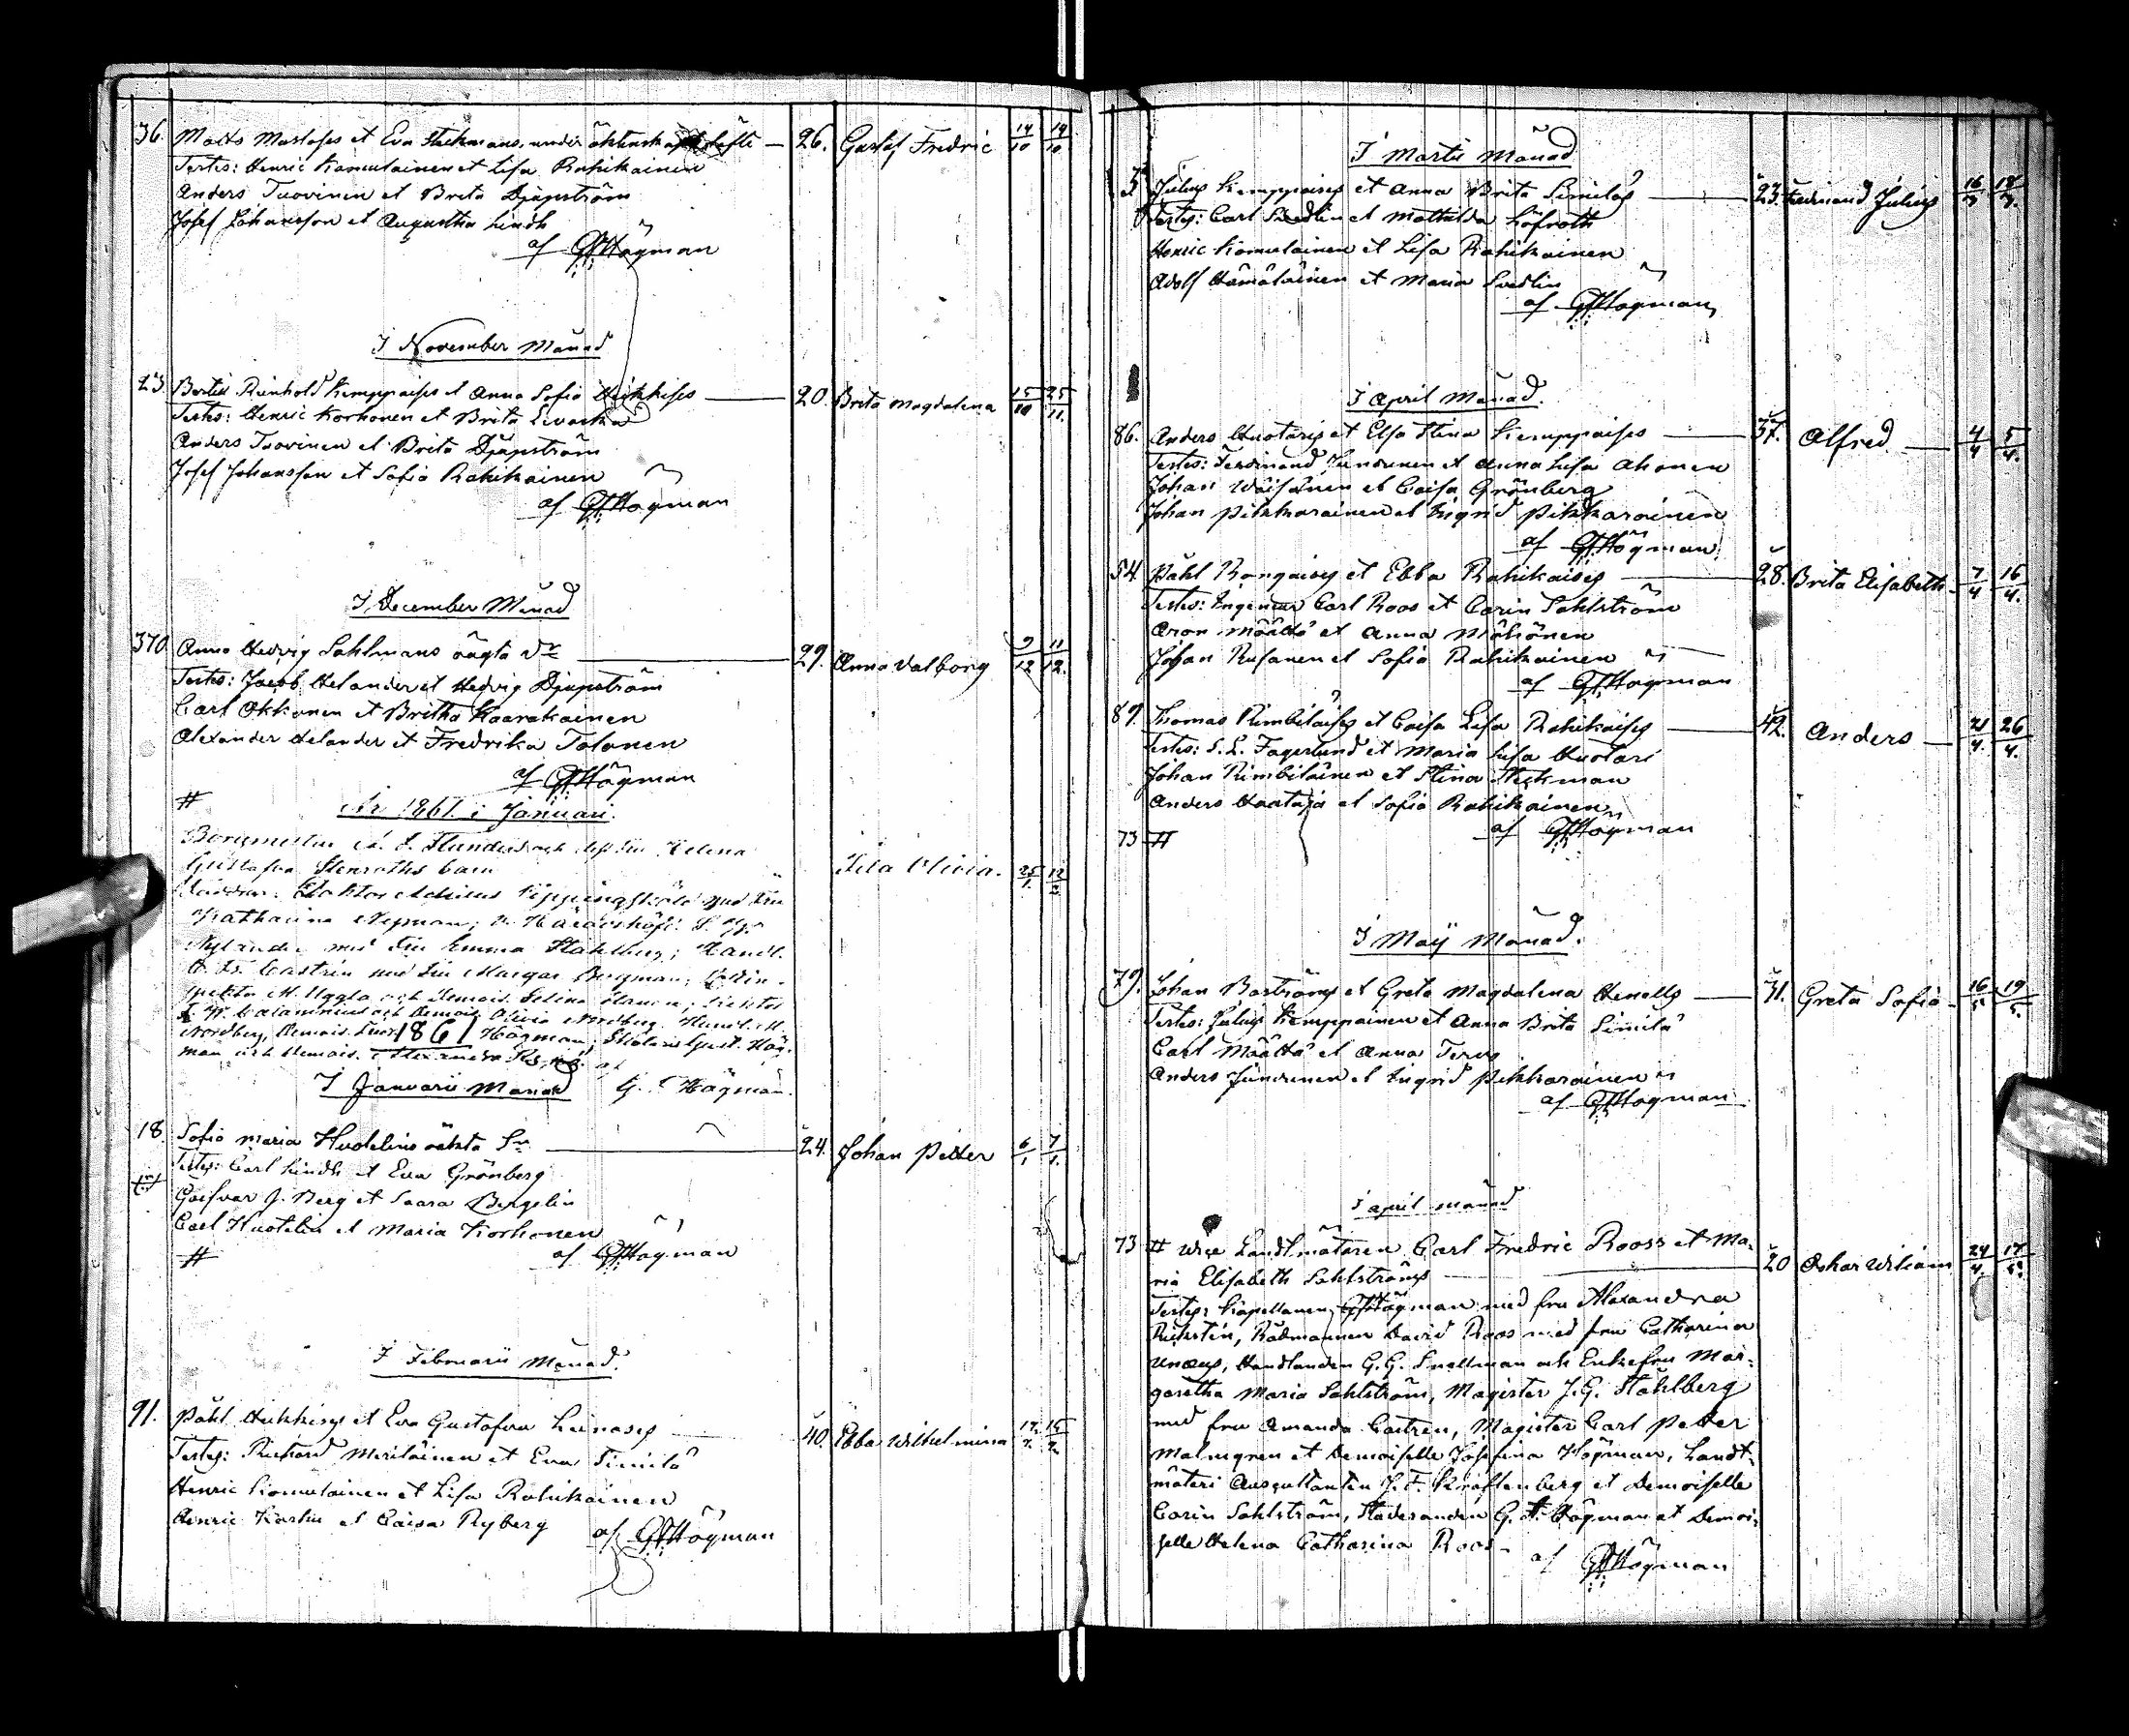 36. Matts Mustoses et Eva Steckmans, under äktenskapslöfte — 26. Gustaf Fredric 14/10 19/10
Testes: Henric Komulainen et Lisa Rahikainen
Anders Tuovinen et Brita Djupström
Josef Johansson et Augustha Lindh
af GFHögman
I November Månad
23. Bertil Reinhold Kemppaises et Anna Sofia Heikkises — 20. Brita Magdalena 15/10 25/11.
Testes: Henric Korhonen et Brita
Anders Tuovinen et Brita Djupström
Josef Johansson et Sofia Rahikainen
af GFHögman
I December Månad
370 Anna Hedvig Sahlmans oägta dr — 29. Anna Valborg 9/12 11/12.
Testes: Jacob Helander et Hedvig Djupström
Carl Okkonen et Britha Kaarakainen
Alexander Helander et Fredrika Tolonen
af GFHögman
# År 1861. i Januari.
Helena
Gustafva Stenroths barn Olivia. 25/1. 12/2.
Faddrar: Doktor med Fru
Katharina Nyman; v. Häradshöfd.
Nylander med Fru Emma Ståhlberg; Handl.
Castrén med Fru Bergman;
M. Uggla och Demois. Selina
Calamnius och Demois. Olivia Nordberg. Handl.
Nordberg, Demois. 1861 Högman, Gust. Hög-
man och Demois. af
I Januarii Månad G. F. Högman.
18. Sofia Maria Huotelins oäkta Sn — 24. Johan Petter 6/1 7/1.
Testes: Carl Lindh et Eva Grönberg
J. Berg et Saara Bergelin
Carl Huotelin et Maria Korhonen
# af GFHögman
I Februarii Månad.
91. Påhl Heikkises et Eva Gustafva Leinoses — 40. Ebba Wilhelmina 12/2. 15/2.
Testes: Richard Meriläinen et Eva Similä
Henric Komulainen et Lisa Rahikainen
Henric Karlin et Caisa Ryberg af GFHögman
I Martii Månad
3 Julius Kemppaises et Anna Brita Similäs — 23. Ferdinand Julius 16/3 18/3.
Testes: Carl Svedlin et Mathilda Löfroth
Henric Komulainen et Lisa Rahikainen
Adolf Hämäläinen et Maria Svedlin
af GFHögman
I April Månad.
86. Anders Huotaris et Elsa Stina Kemppaises — 37. Alfred — 4/4 5/4.
Testes: Ferdinand Jundunen et Anna Lisa Ahonen
Johan Wäisänen et Caisa Grönberg
Johan Pikkarainen et Ingrid Pikkarainen
af GFHögman
54. Påhl Rongaises et Ebba Rahikaises — 28. Brita Elisabeth 7/4 16/4.
Testes: Ingenieur Carl Roos et Carin Sahlström
Aron Määttä et Anna Möhönen
Johan Rusanen et Sofia Rahikainen
af GFHögman
89. Thomas Rimbiläises et Caisa Lisa Rahikaises — 42. Anders — 21/4. 26/4.
Testes: S. L. Fagerlund et Maria Lisa Huotari
Johan Rimbiläinen et Stina Steckman
Anders Haataja et Sofia Rahikainen
73 # af GFHögman
I Maij Månad.
79. Johan Boströms et Greta Magdalena Henells — 31. Greta Sofia 16/5 19/5.
Testes: Julius Kemppainen et Anna Brita Similä
Carl Määttä et Anna Tervo
Anders Jundunen et Ingrid Pikkarainen
af GFHögman
I April månad
73 # Vice Landtmätaren Carl Fredric Rooss et Ma-
ria Elisabeth Sahlströms — 20 Oskar Wiliam 24/4. 17/5.
Testes: Kapellanen GFHögman med fru Alexandra
Richstén, Rådmannen David Roos med fru Catharina
Unæus, Handlanden G. G. Snellman och Enkefru Mar-
garetha Maria Sahlström, Magister J. G. Ståhlberg
med fru Amanda Castrén, Magister Carl Petter
Malmgren et Demoiselle Josefina Högman, Landt-
mäteri Auscultanten J. F. Kraftenberg et Demoiselle
Carin Sahlström, Studeranden G. A. Högman et Demoi-
selle Helena Catharina Roos — af GFHögman